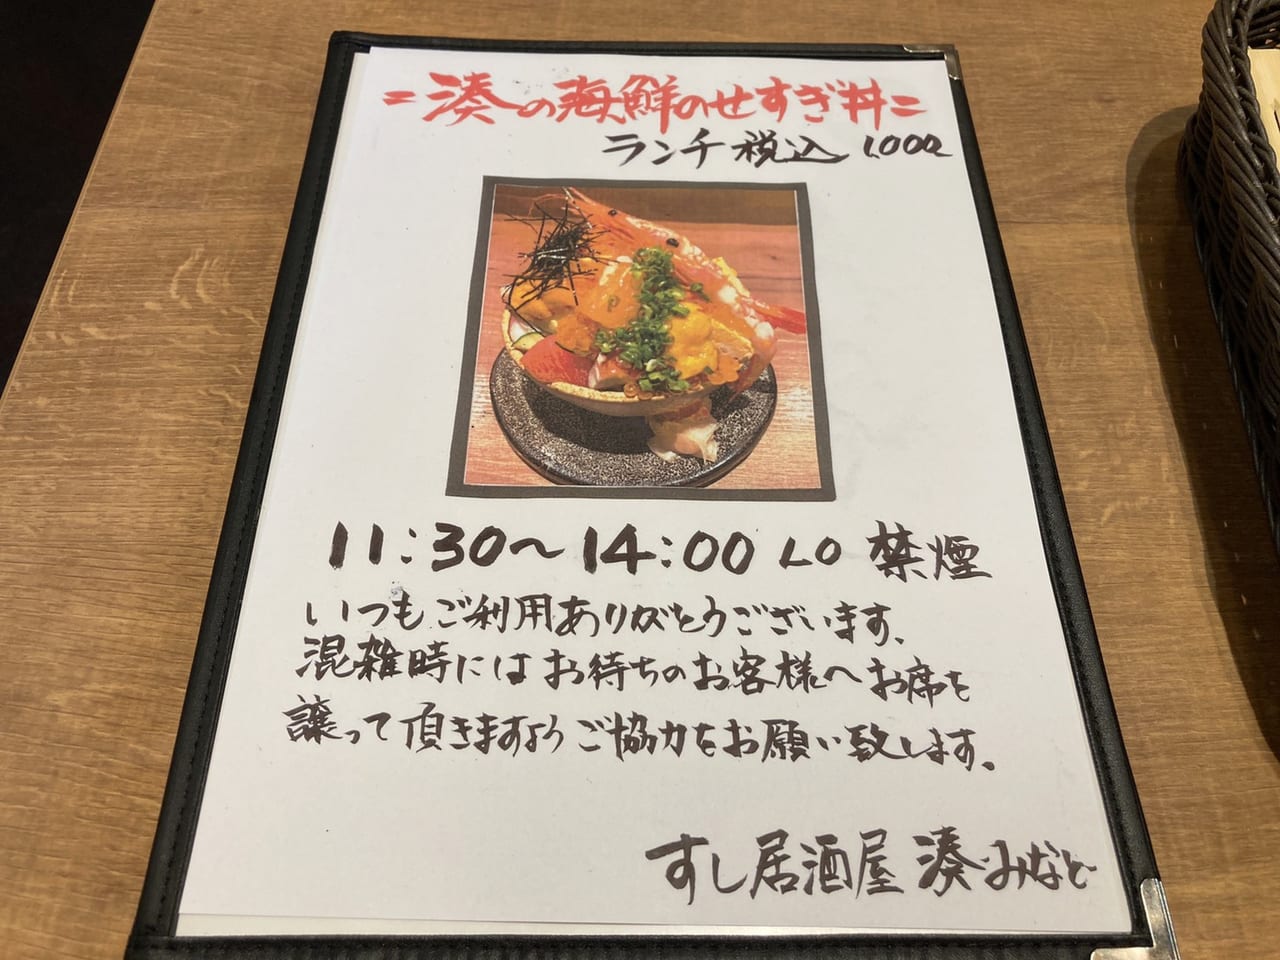 =湊の海鮮のせすぎ丼=
ランチ 税込 1,000
11:30～14:00 LO 禁煙
いつもご利用ありがとうございます、
混雑時にはお待ちのお客様へお席を
譲って頂きますようご協力をお願い致します。
すし居酒屋 湊・みなと